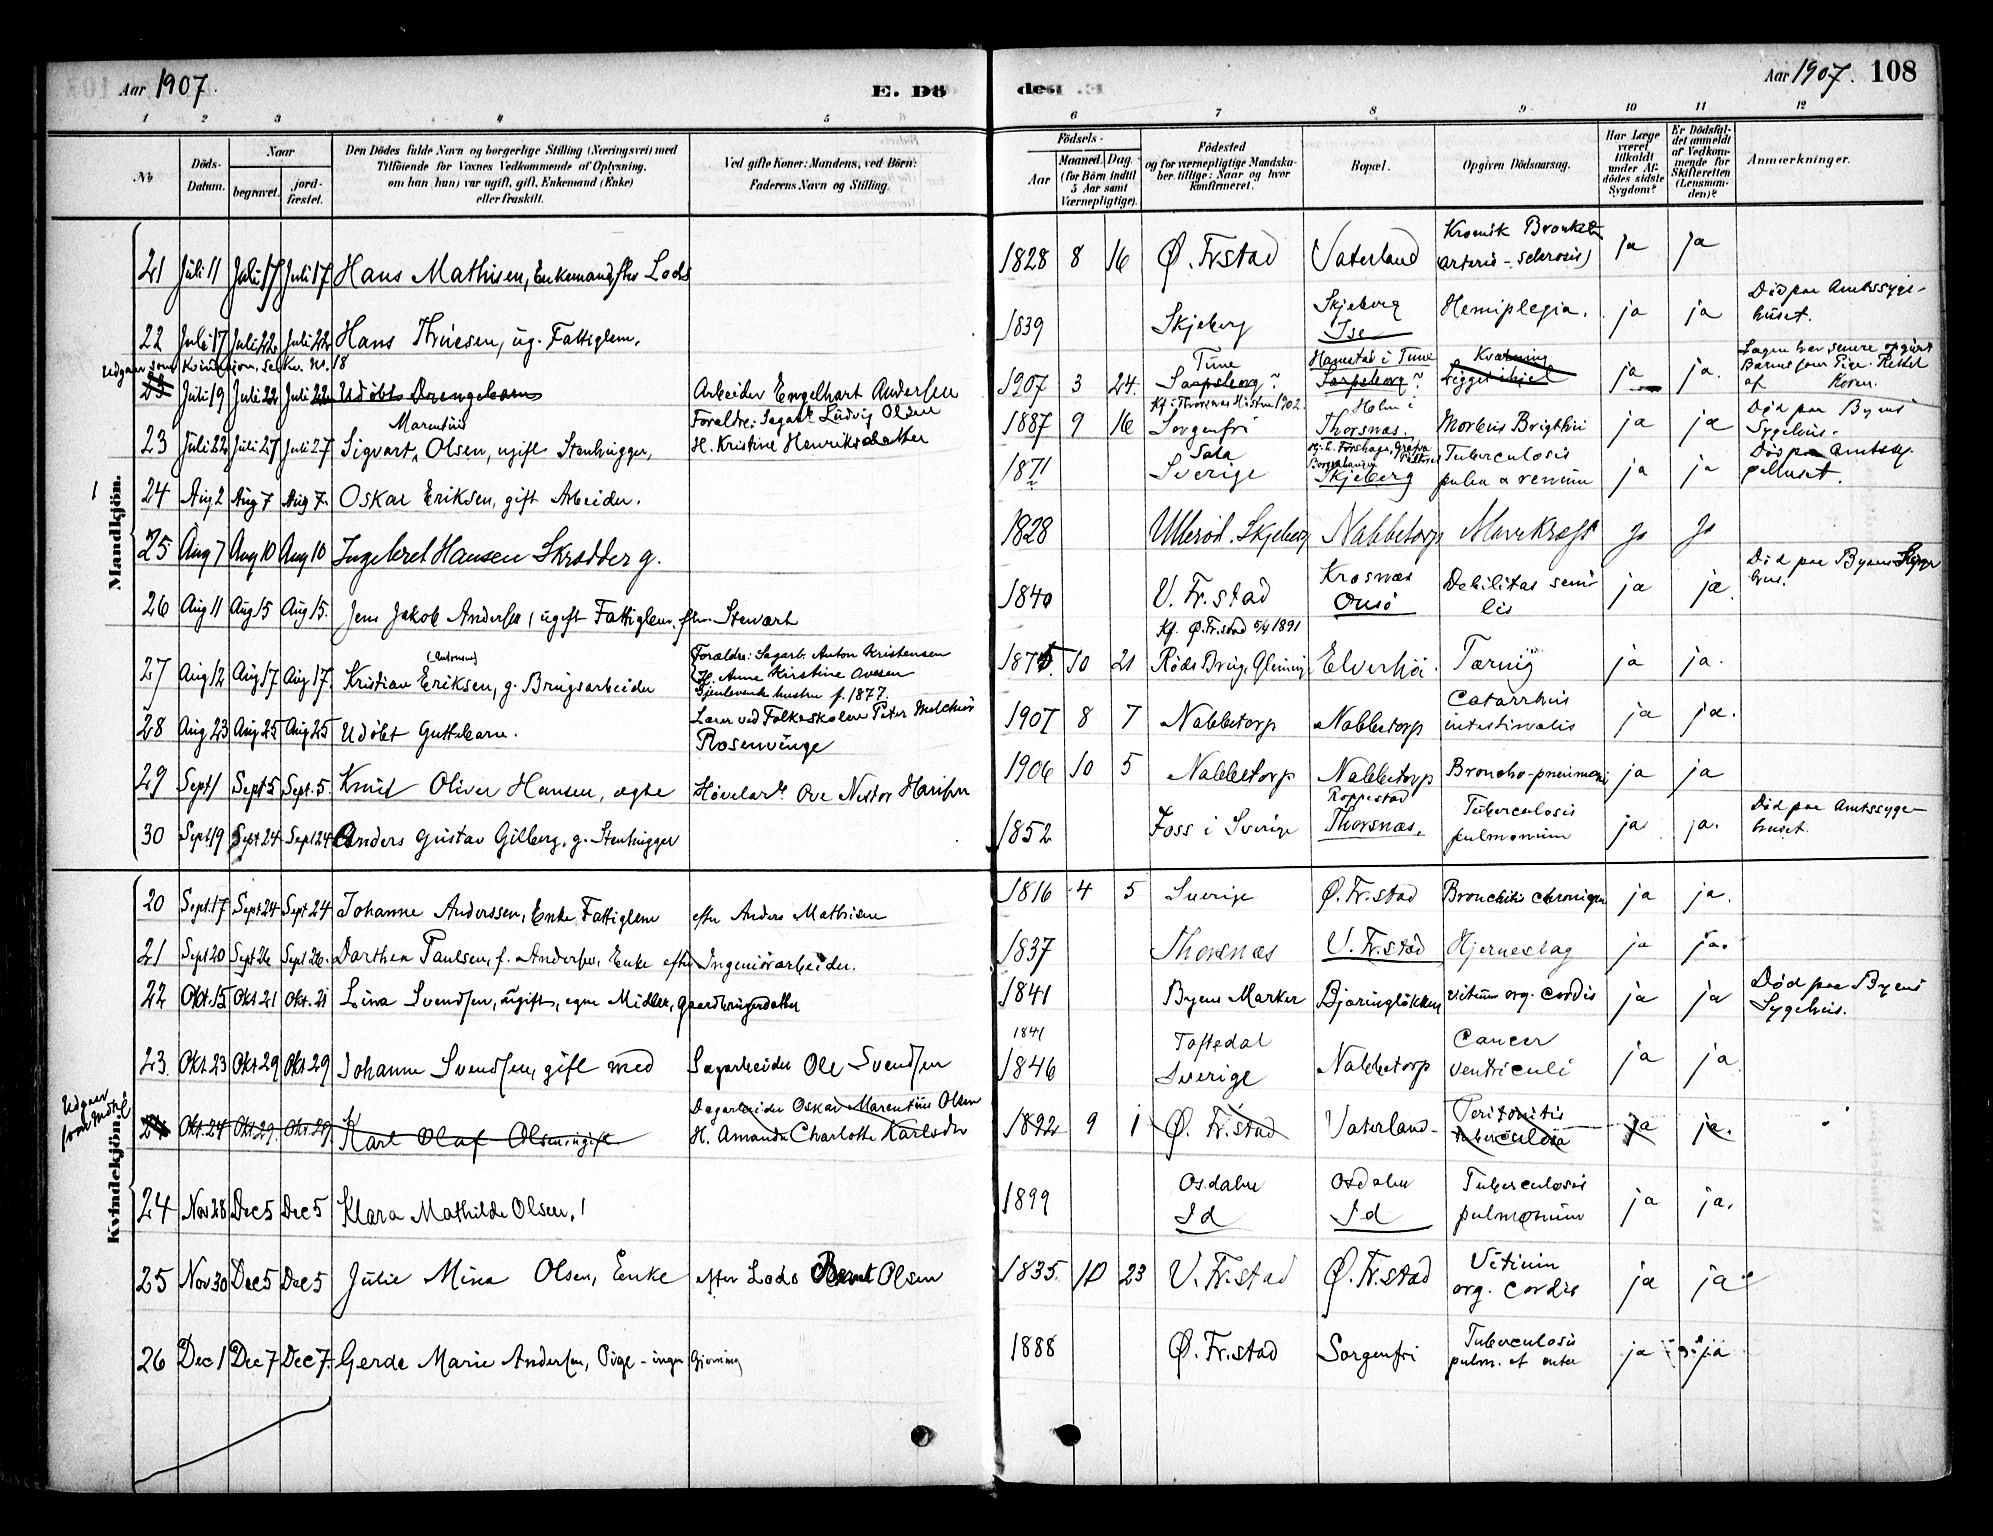 Aar 1907.
E. Dö
des .E
Aar 1907. 108
1 2 3 4 5 6 7 8 9 10 11 12
No
Döds-Datum.
Naar
begravet.
jord-fæstet.
Den Dödes fulde Navn og borgerlige Stilling (Næringsvei) med
Tilföiende for Voxnes Vedkommende af Oplysning,
om han (hun) var ugift, gift, Enkemand (Enke)
eller fraskilt.
Ved gifte Koner: Mandens, ved Börn:
Faderens Navn og Stilling.
Födsels-
Aar
Maaned. Dag.
(for Börn indtil
5 Aar samt
Værnepligtige).
Födested
og for værnepligtige Mandska-
ber tillige: Naar og hvor
konfirmeret.
Bopæl.
Opgiven Dödsaarsag.
Har Læge
været
tilkaldt
under Af-
dödes sidste
Sygdom?
Er Dödsfal-
det anmeldt
af Vedkom-
mende for
Skifteretten
(Lensman-
den)?
Anmærkninger.
Mandkjön.
21 Juli 11 Juli 17 Juli 17 Hans Mathisen, Enkemand fhv Lods 1828 8 16 Ø. Frstad Vaterland Kronisk Bronkit (arterio-sclerosis) ja ja
22 Juli 17 Juli 22 Juli 22 Hans Thruesen, ug. Fattiglem. 1839 Skjeberg Skjeberg Ise Hemiplegia. ja ja Död paa Amtssyge-huset.
Udgaar som Kvindekjøn, se Kv. No. 18
23 Juli 19 Juli 22 Juli 22 Udöbt Drengebarn Arbeider Engelhart Andersen 1907 3 24 Tune Sarpsborg? Hanestad i Tune Sarpsborg? Kvælning Ligget ihjel ja ja. Lægen har senere opgivet Barnet som Pige. Rettet af
23 Juli 22 Juli 27 Juli 27 Sigvart Marentius Olsen, ugift Stenhugger, Forældre: Sagarb. Ludvig Olsen H. Kristine Henriksdatter 1887 9 16 Kf. i Thorsnæs Høsten 1902. Sorgenfri Holm i Thorsnæs. Morbus Brigthii ja ja Død paa Byens Sygehus.
24 Aug 2 Aug 7 Aug 7. Oskar Eriksen, gift Arbeider. 1871 Sverige Skjeberg Tuberculosis pulm & renum ja ja Død paa Amtssy-gehuset.
25 Aug 7 Aug 10 Aug 10 Ingebret Hansen Skrædder g. 1828 Ullerød. Skjeberg Nabbetorp Mavekræft ja ja
26 Aug 11 Aug 15 Aug 15. Jens Jakob Andersen, ugift Fattiglem. fhv. Stewart 1840 V. Fr.stad Kraknæs Onsö Debilitas seni-lis ja ja. Död paa Byens Syge-hus.
27 Aug 12 Aug 17 Aug 17. Kristian (Antonsen) Eriksen, g. Brugsarbeider Forældre: Sagarb. Anton Kristensen H. Anne Kristine Ovesen Gjenlevende hustru f. 1877. 1875 10 21 Kf. Ø. Fr.stad 5/4 1891 Röds Brug, Glemmige Elverhöi. Tæring ja ja.
28 Aug 23 Aug 25 Aug 25 Udöbt Guttebarn. Lærer ved Folkeskolen Peter Melchior Rosenvinge 1907 8 7 Nabbetorp Nabbetorp Catarrhus intestinalis ja ja.
29 Sept 1 Sept 5 Sept. 5. Knut Oliver Hansen, ægte Høvelarb. Ove Nestor Hansen 1906 10 5 Nabbetorp Nabbetorp Broncho-pneumoni ja ja
30 Sept 19 Sept 24 Sept 24 Anders Gustav Gilberg, g. Stenhugger 1852 Foss i Sverige Roppestad Thorsnæs. Tuberculosis pulmonum ja ja. Död paa Amtssyge-huset.
Kvindekjön.
20 Sept. 17 Sept 24 Sept 24 Johanne Anderssen, Enke Fattiglem efter Anders Mathisen 1816 4 5 Sverige Ø. Fr.stad Bronchitis chronica ja ja.
21 Sept 20 Sept 26 Sept 26. Dorthea Paulsen, f. Andersen, Enke efter Ingeniörarbeider. 1837 Thorsnæs V. Fr.stad Hjerneslag ja ja.
22 Okt. 15 Okt 21 Okt. 21 Lina Svendsen, ugift, egne Midler, gaardbrugerdatter 1841 Byens Marker Bjøringløkken vitium org. cordis ja ja Död paa Byens Sygehus.
23. Okt. 23 Okt 29 Okt 29 Johanne Svendsen, gift med Sagarbeider Ole Svendsen 1841 1846 Toftedal Sverige Nabbetorp Cancer ventriculi ja ja
Udgaar som Mdkj.
24 Okt. 24 Okt 29. Okt. 29 Karl Olaf Olsen ugift Dagarbeider Oskar Marentius Olsen H. Amanda Charlotte Karlsdr 1892 9 1 Ø. Fr.stad Vaterland- Peritonitis tuberculosa ja ja.
24 Nov 28 Dec 5 Dec 5 Klara Mathilde Olsen, 1899 Osdalen Id Osdalen Id Tuberculosis pulmonum ja ja.
25 Nov 30 Dec 5 Dec 5 Julie Mina Olsen, Enke efter Lods Bernt Olsen 1835. 10 23 V. Fr.stad Ø. Fr.stad Vitium org. cordis ja ja
26 Dec 1 Dec 7 Dec 7- Gerda Marie Andersen, Pige - ingen Gjerning 1888 Ø. Fr.stad Sorgenfri Tuberculosis pulm. et enter ja ja